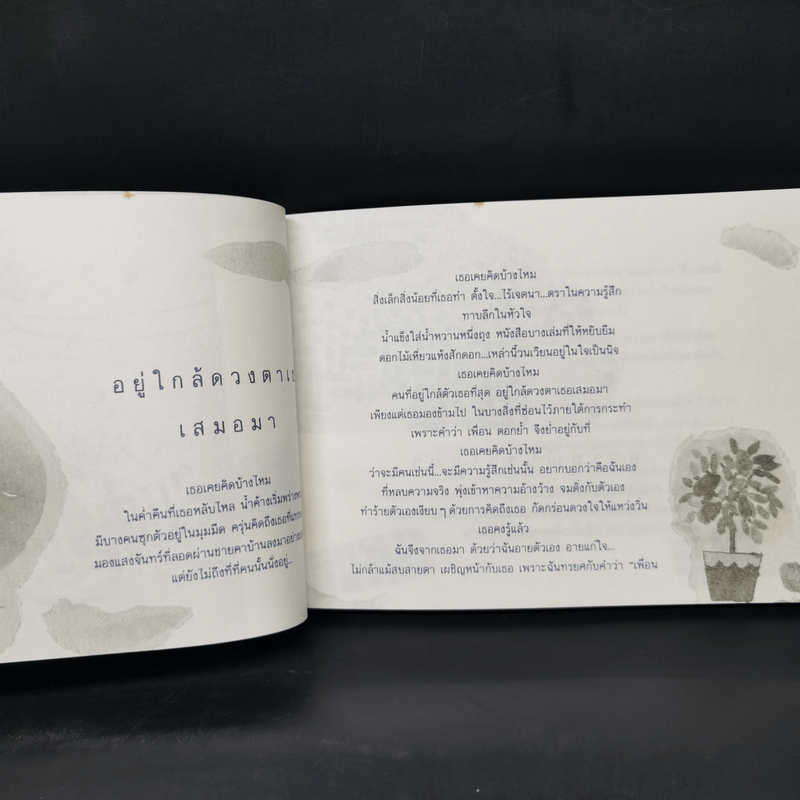 อยู่ใกล้ดวงตาเธ
เสมอมา
เธอเคยคิดบ้างไหม
ในค่ำคืนที่เธอหลับไหล น้ำค้างเริ่มพร่างพร
มีบางคนซุกตัวอยู่ในมุมมืด ครุ่นคิดถึงเธอที่
มองแสงจันทร์ที่ลอดผ่านชายคาบ้านลงมาอย่าง
แต่ยังไม่ถึงที่ที่คนนั้นนั่งอยู่...
เธอเคยคิดบ้างไหม
สิ่งเล็กสิ่งน้อยที่เธอทำ ตั้งใจ...ไร้เจตนา...ตราในความรู้สึก
ทาบลึกในหัวใจ
น้ำแข็งใส่น้ำหวานหนึ่งถุง หนังสือบางเล่มที่ให้หยิบยืม
ดอกไม้เหี่ยวแห้งสักดอก...เหล่านี้วนเวียนอยู่ในใจเป็นนิจ
เธอเคยคิดบ้างไหม
คนที่อยู่ใกล้ตัวเธอที่สุด อยู่ใกล้ดวงตาเธอเสมอมา
เพียงแต่เธอมองข้ามไป ในบางสิ่งที่ซ่อนไว้ภายใต้การกระทำ
เพราะคำว่า เพื่อน ตอกย้ำ จึงย่ำอยู่กับที่
เธอเคยคิดบ้างไหม
ว่าจะมีคนเช่นนี้...จะมีความรู้สึกเช่นนั้น อยากบอกว่าคือฉันเอง
ที่หลบความจริง พุ่งเข้าหาความอ้างว้าง จมดิ่งกับตัวเอง
ทำร้ายตัวเองเงียบๆ ด้วยการคิดถึงเธอ กัดกร่อนดวงใจให้แหว่งวิ่น
เธอคงรู้แล้ว
ฉันจึงจากเธอมา ด้วยว่าฉันอายตัวเอง อายแก่ใจ...
ไม่กล้าแม้สบสายตา เผชิญหน้ากับเธอ เพราะฉันทรยศกับคำว่า "เพื่อน